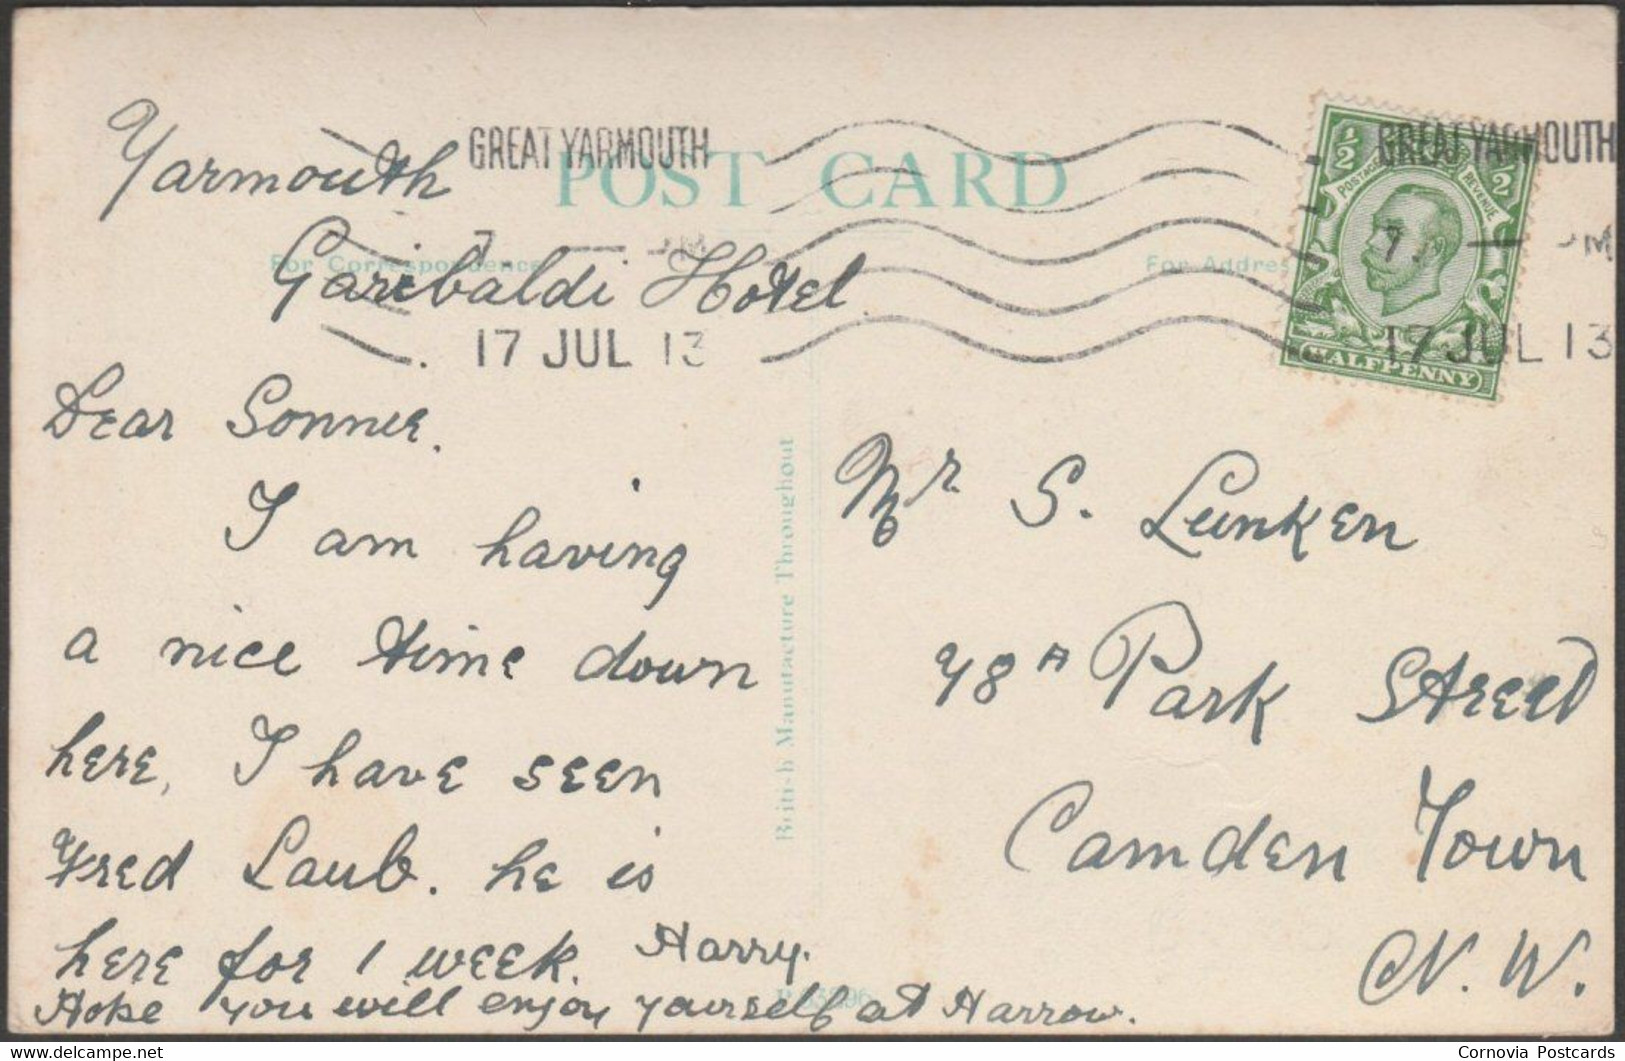 Yarmouth
GREAT YARMOUTH
POST CARD
For Correspondence
Garibaldi Hotel.
17 JUL 13
Dear Sonnie.
I am having
a nice time down
here, I have seen
Fred Laub. he is
here for 1 week. Harry.
Hope you will enjoy yourself at Harrow.
British Manufacture Throughout
GREAT YARMOUTH
17 JUL 13
½ ½
POSTAGE REVENUE
HALFPENNY
For Address
Mr S. Lunken
78A Park Street
Camden Town
N.W.
Cornovia Postcards